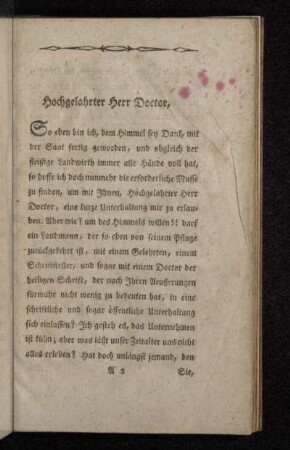 Hochgelahrter Herr Doctor,
So eben bin ich, dem Himmel sey Dank, mit
der Saat fertig geworden, und obgleich der
fleißige Landwirth immer alle Hände voll hat,
so hoffe ich doch nunmehr die erforderliche Masse
zu finden, um mit Ihnen, Hochgelahrter Herr
Doctor, eine kurze Unterhaltung mir zu erlau-
ben. Aber wie? um des Himmels willen!! darf
ein Landmann, der so eben von seinem Pfluge
zurückgekehrt ist, mit einem Gelehrten, einem
Schriftsteller, und sogar mit einem Doctor der
heiligen Schrift, der nach Ihren Aeusserungen
fürwahr nicht wenig zu bedeuten hat, in eine
schriftliche und sogar öffentliche Unterhaltung
sich einlassen? Ich gesteh es, das Unternehmen
ist kühn; aber was läßt unser Zeitalter uns nicht
alles erleben? Hat doch unlängst jemand, den
A 2 Sie,